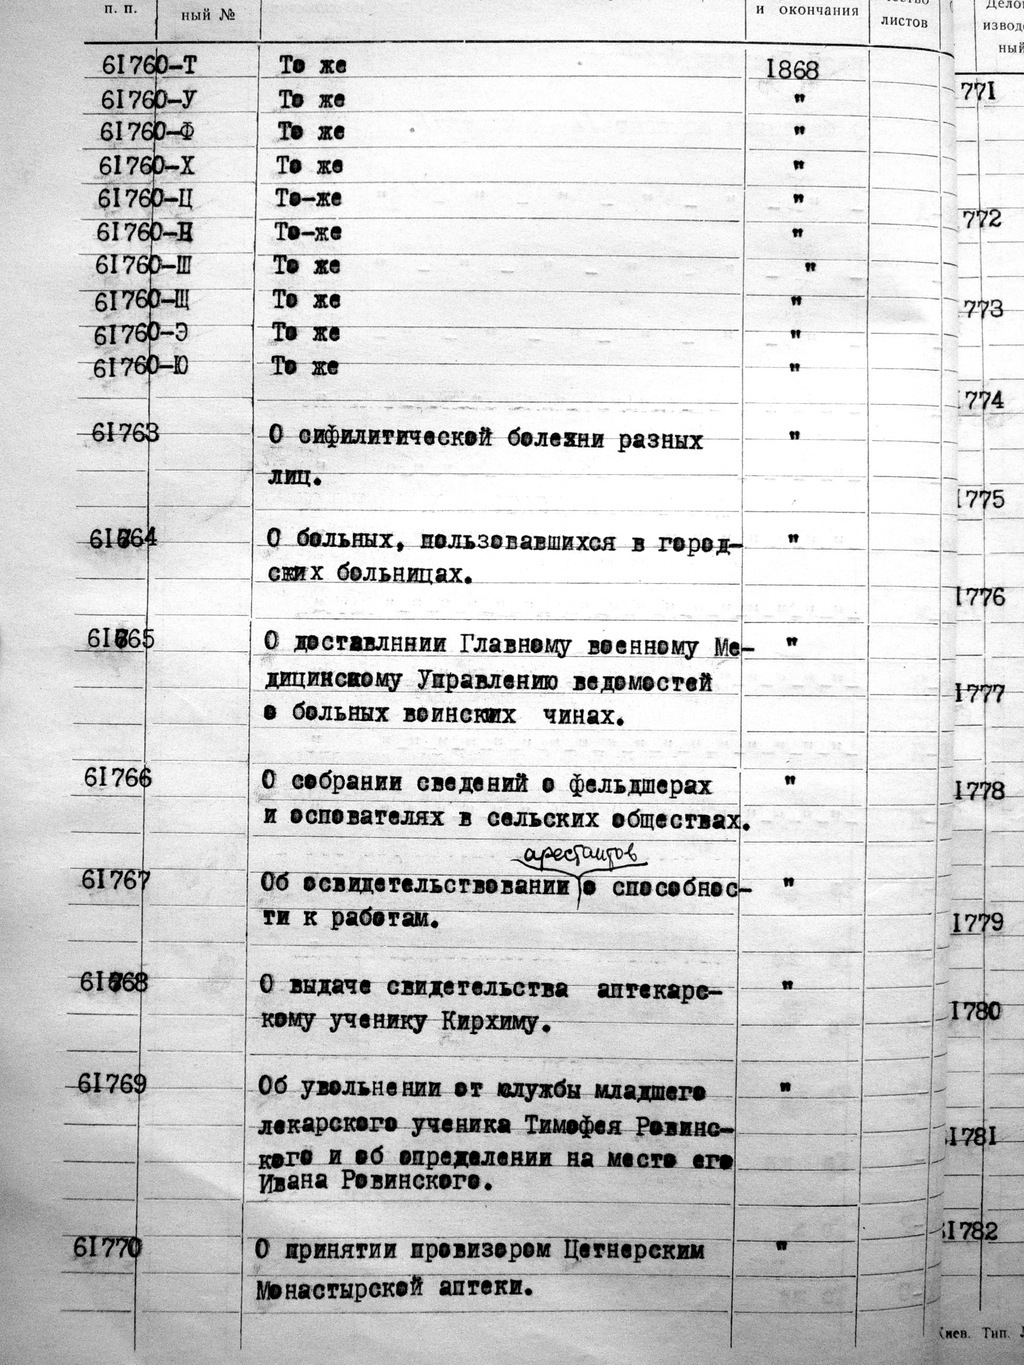 п. п.
ный №
и окончания
листов
61760-Т То же 1868
61760-У То же "
61760-Ф То же "
61760-Х То же "
61760-Ц То-же "
61760-Ч То-же "
61760-Ш То же "
61760-Щ То же "
61760-Э То же "
61760-Ю То же "
61763 О сифилитической болезни разных "
лиц.
61764 О больных, пользовавшихся в город- "
ских больницах.
61765 О доставлннии Главному военному Ме- "
дицинскому Управлению ведомостей
о больных воинских чинах.
61766 О собрании сведений о фельдшерах "
и оспователях в сельских обществах.
арестантов
61767 Об освидетельствовании о способнос- "
ти к работам.
61768 О выдаче свидетельства аптекарс- "
кому ученику Кирхиму.
61769 Об увольнении от службы младшего "
лекарского ученика Тимофея Ровинс-
кого и об определении на место его
Ивана Ровинского.
61770 О принятии провизором Цетнерским "
Монастырской аптеки.
ный
771
772
773
1774
1775
1776
1777
1778
1779
1780
1781
1782
Киев. Тип.